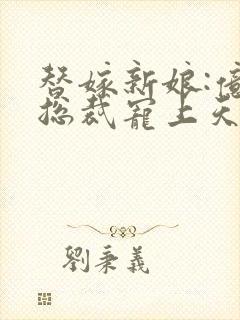 替嫁新娘:億
总裁寵上天
劉秉義